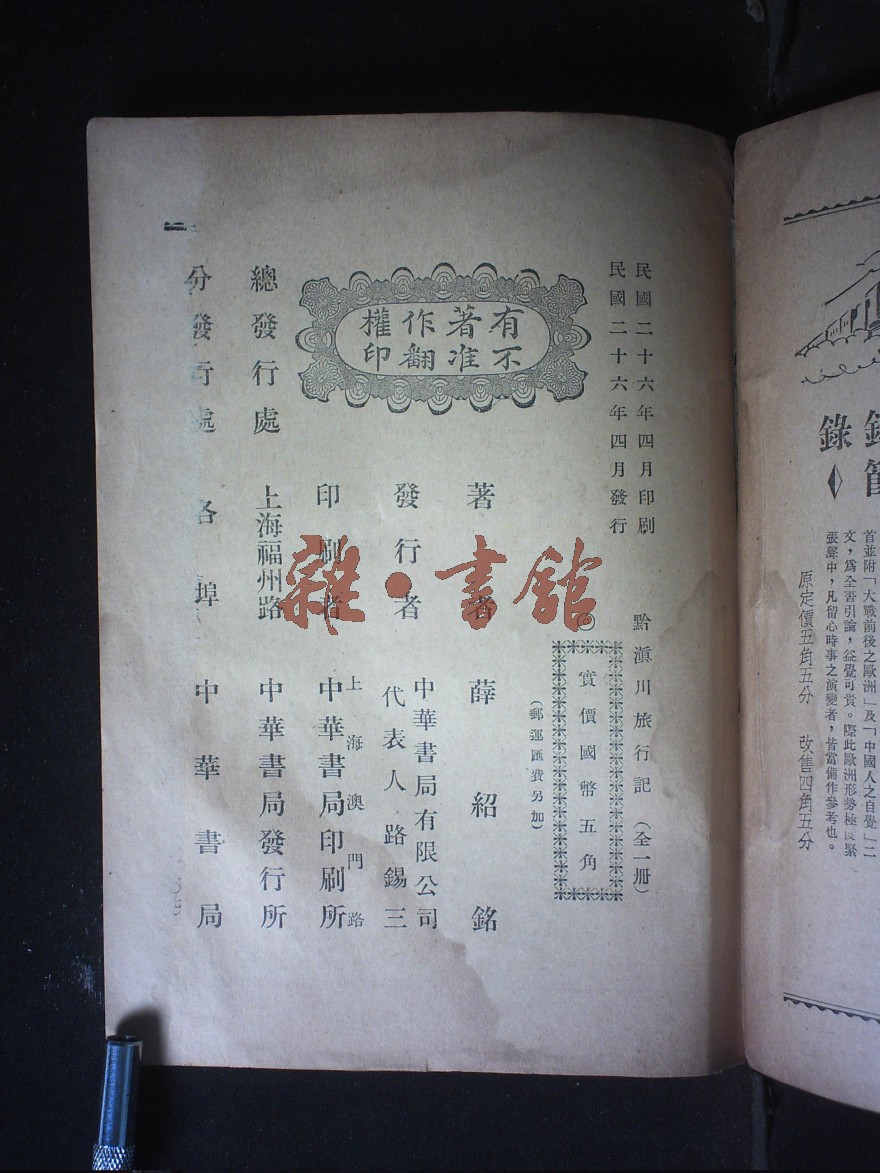 民國二十六年四月印刷
民國二十六年四月發行
黔滇川旅行記（全一册）
◎
實價國幣五角
（郵運匯費另加）
有著作權
不准翻印
著者 薛紹銘
發行者 中華書局有限公司
代表人 路錫三
上海澳門路
印刷者 中華書局印刷所
總發行處 上海福州路 中華書局發行所
分發行處 各埠 中華書局
雜·書館
錄
首並附「大戰前後之歐洲」及「中國人之自覺」二
文，爲全書引論，益覺可貴。際此歐洲形勢極度緊
張聲中，凡留心時事之演變者，皆當備作參考也。
原定價五角五分 改售四角五分